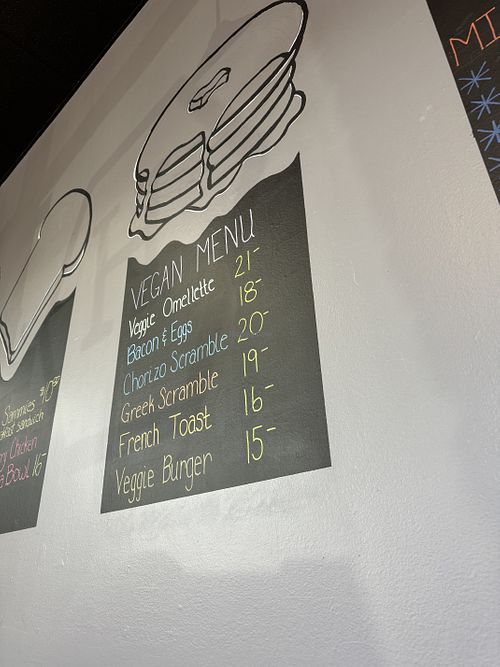 VEGAN MENU
Veggie Omellette 21-
Bacon & Eggs 18-
Chorizo Scramble 20-
Greek Scramble 19-
French Toast 16-
Veggie Burger 15-
Sammies
sandwich
Chicken
Bowl 16-
MI